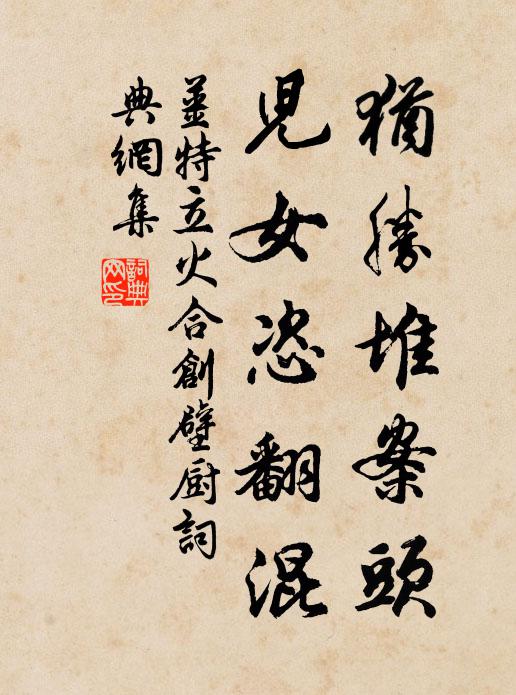 猶勝堆案頭
兒女恣翻混
姜特立火合創壁厨詞
典網集
詞典
网印